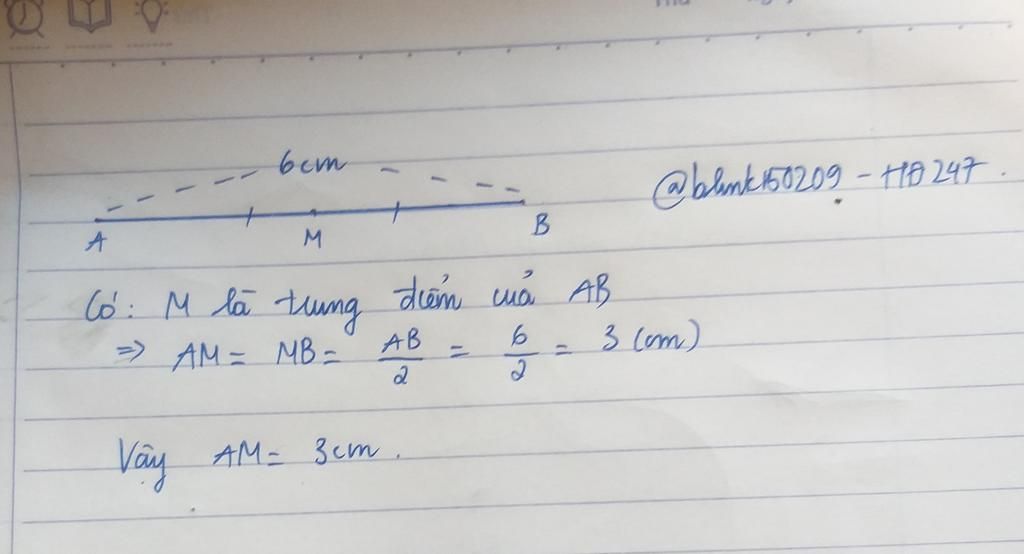 6cm
@blink150209 - HĐ247.
A M B
Có: M là trung điểm của AB
=> AM = MB = AB/2 = 6/2 = 3 (cm)
Vậy AM = 3cm.